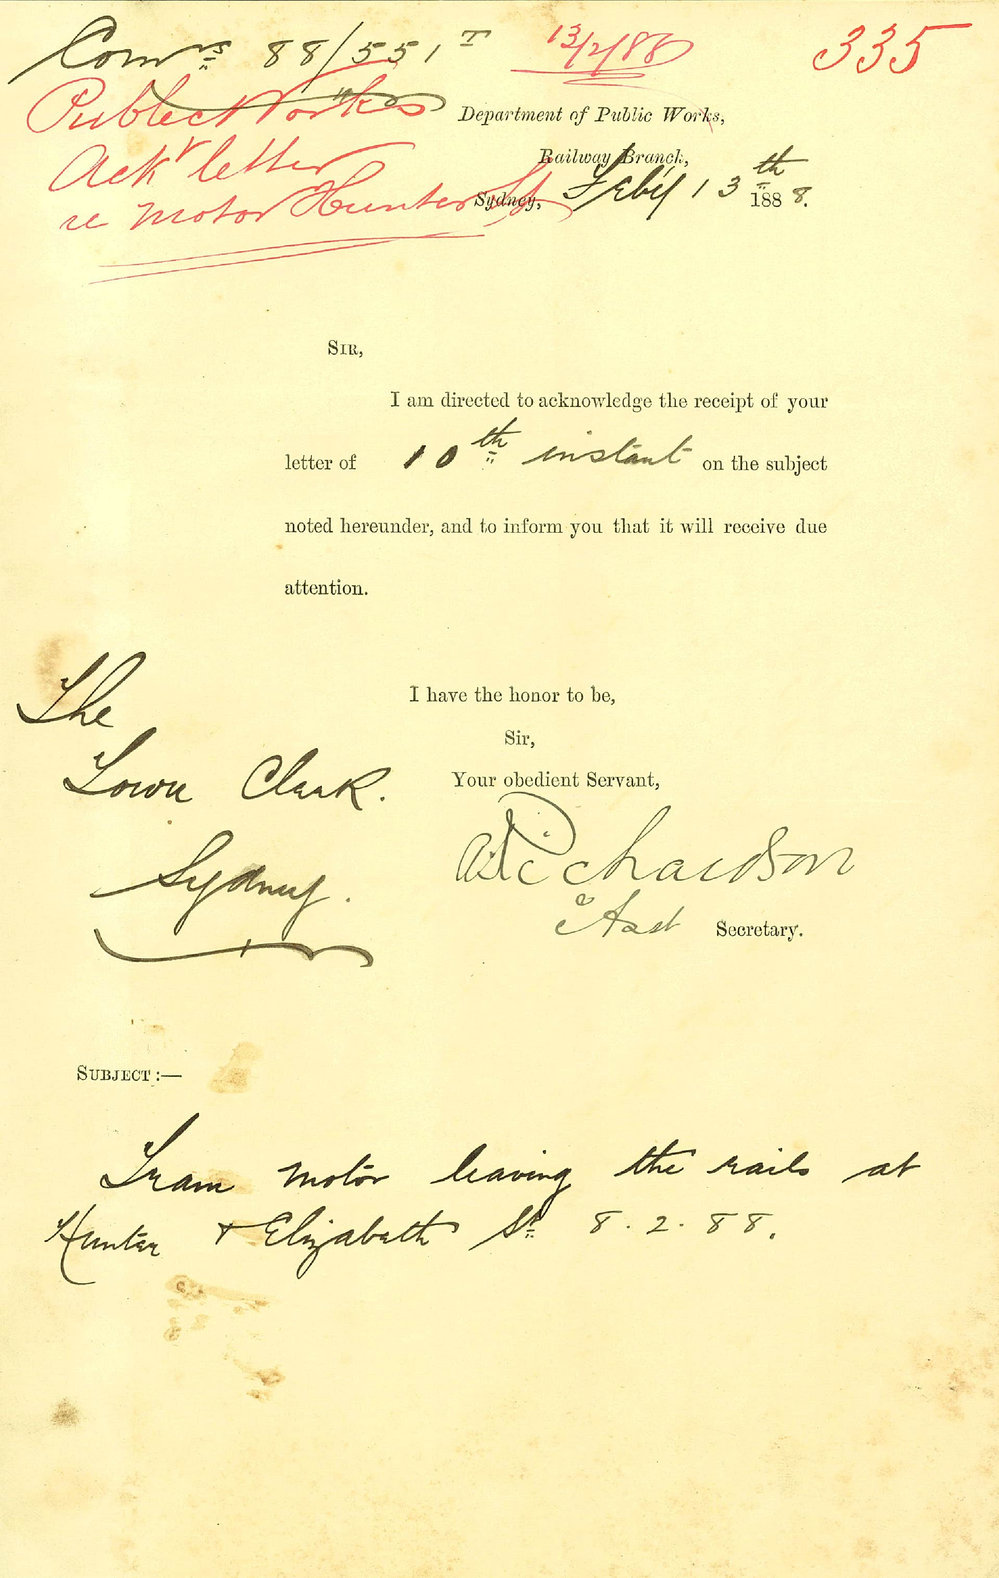 Comrs 88/551 T
13/2/88
335
Public Works
Ackr letter
re motor Hunter St
Department of Public Works,
Railway Branch,
Sydney, Feby 13th 1888.
SIR,
I am directed to acknowledge the receipt of your
letter of 10th instant on the subject
noted hereunder, and to inform you that it will receive due
attention.
I have the honor to be,
Sir,
Your obedient Servant,
Richardson
Asst Secretary.
The
Town Clerk.
Sydney.
SUBJECT :—
Tram motor leaving the rails at
Hunter & Elizabeth St 8.2.88.